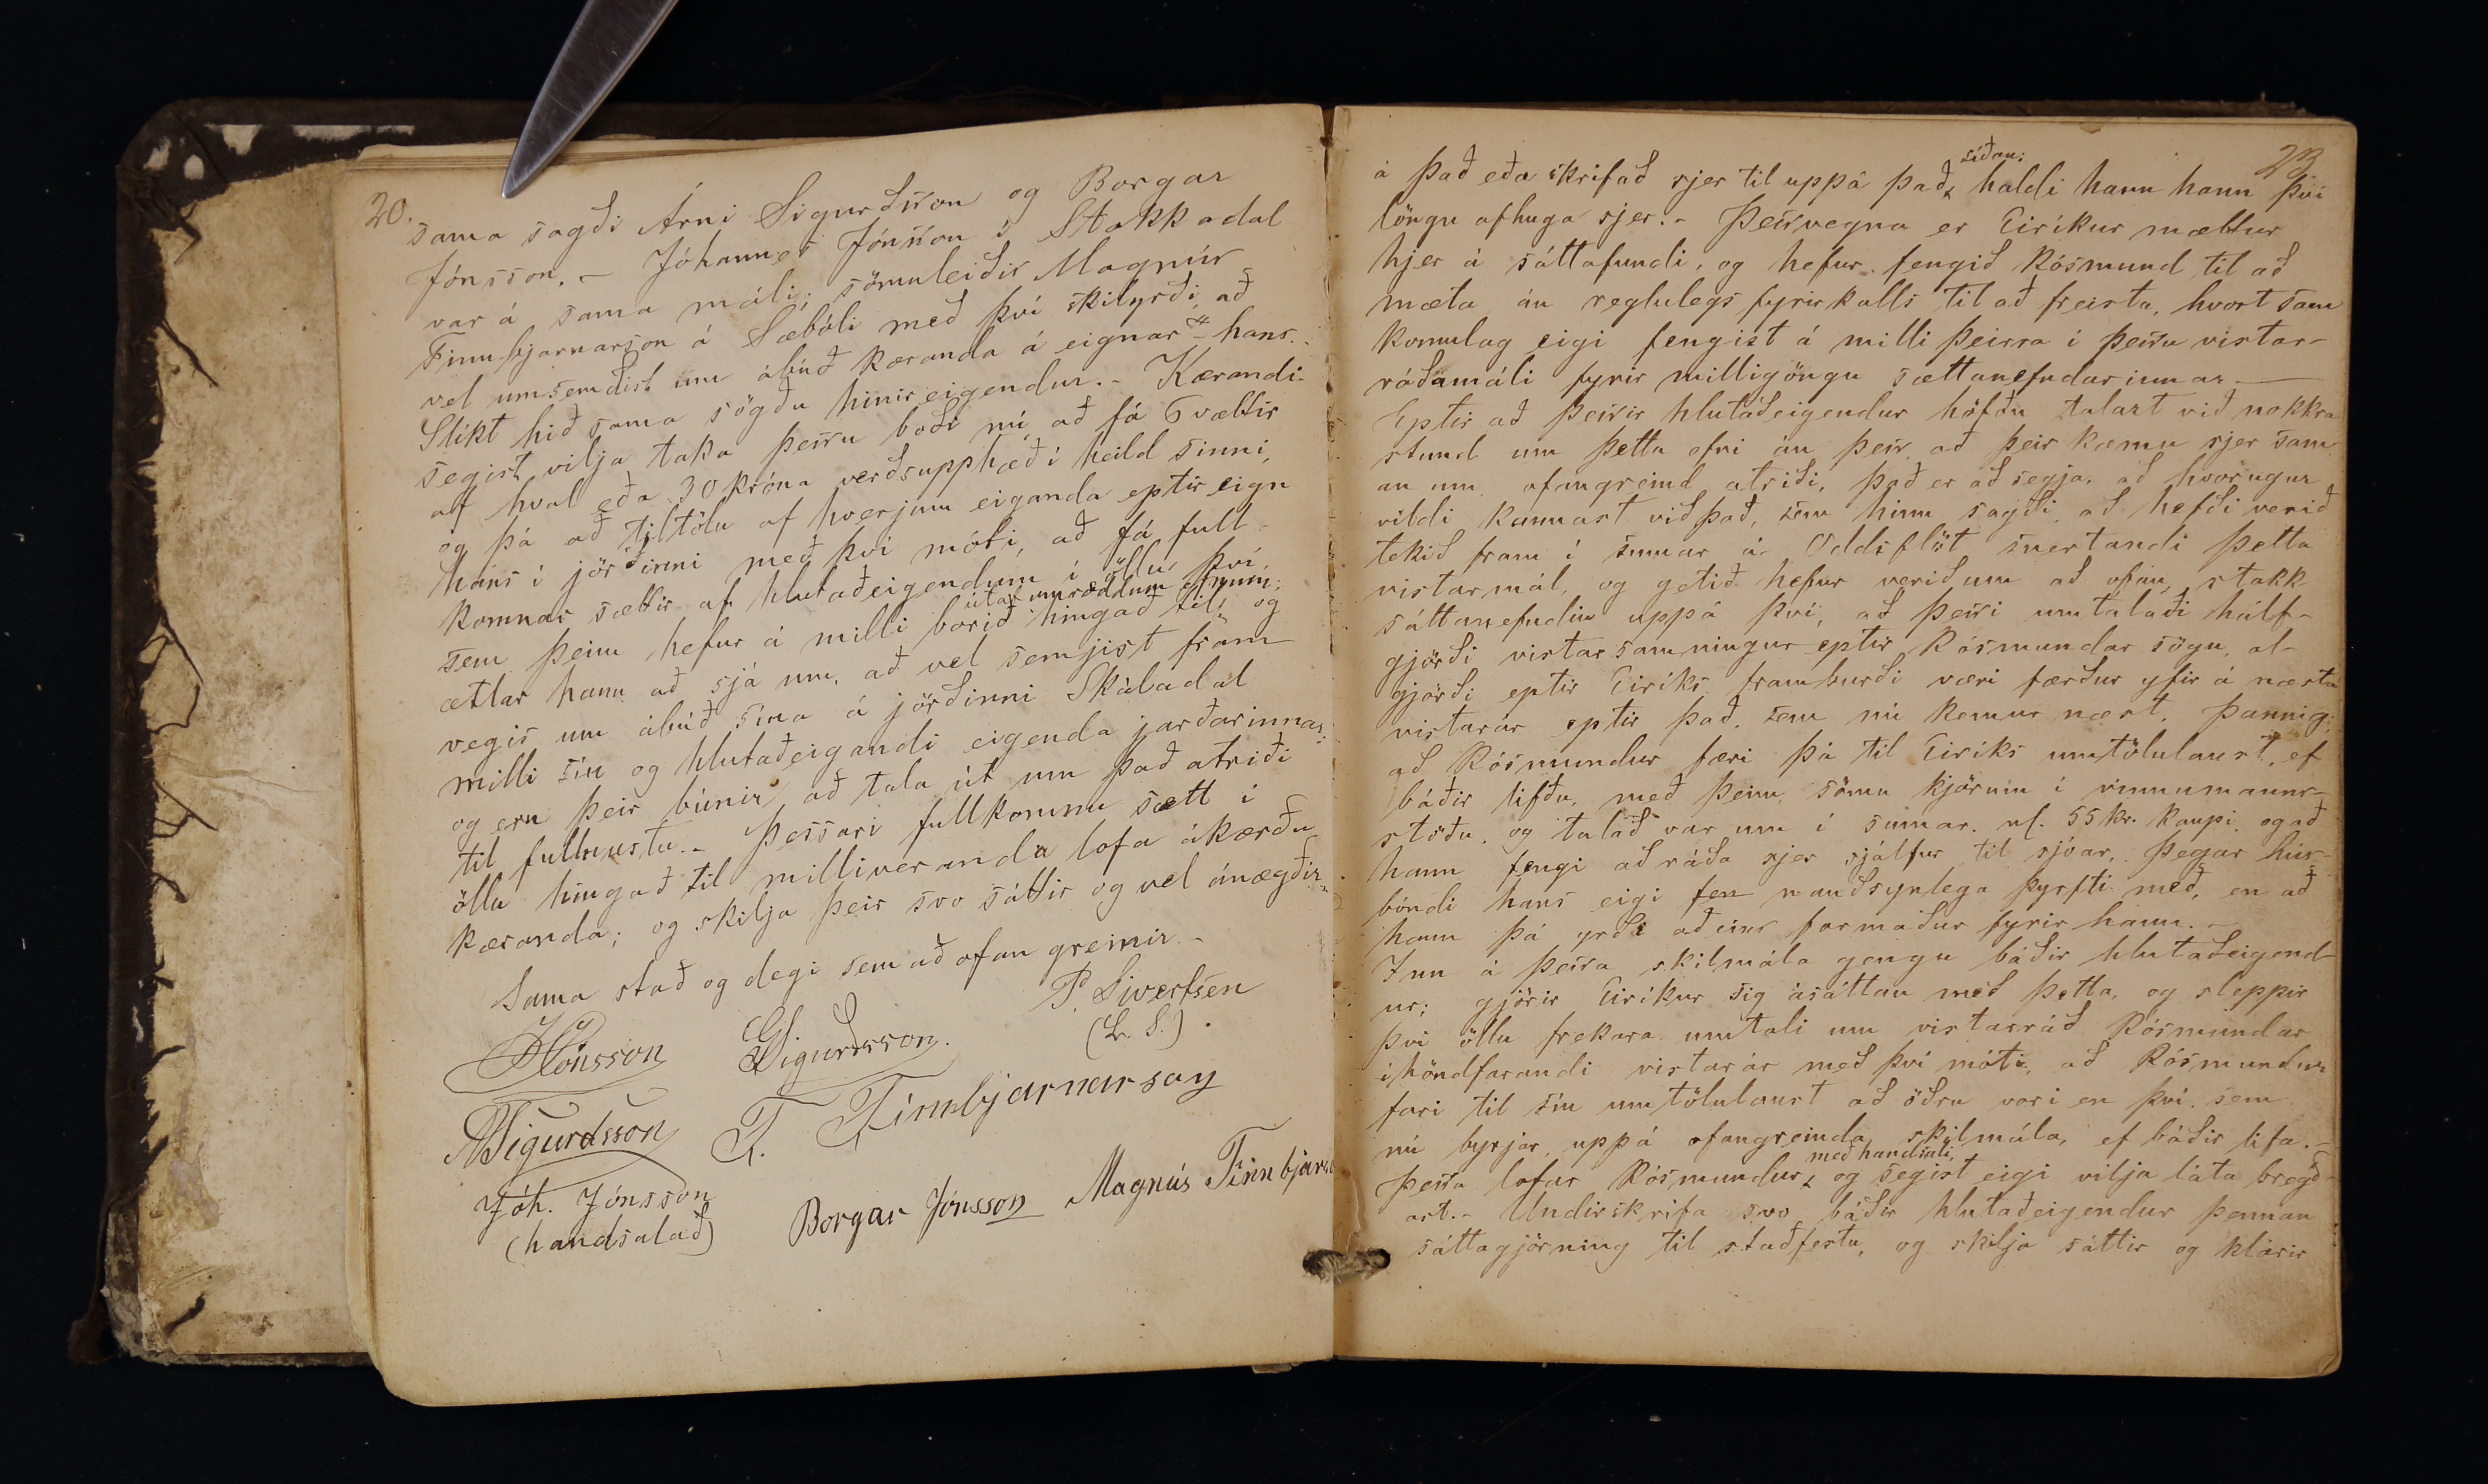 20.
sama sagði Árni Sigurðsson og Borgar
Jónsson. – Jóhannes Jónsson í Stakkadal
var á sama máli; sömuleiðis Magnús
Finnbjarnarson á Sæbóli með því skilyrði, að
vel umsemdist um ábúð kæranda á eignar hans.
Slíkt hið sama sögðu hinir eigendur. – Kærandi
segist vilja taka þessu boði nú að fá 6 vættir
af hval eða 30 króna verðsupphæð í heild sinni,
og þá að tiltölu af hverjum eiganda eptir eign
hans í jörðinni með því móti, að fá full
komnar sættir af hlutaðeigendum í öllu því,
útaf umræddum efnum;
sem þeim hefur á milli borið hingað til, og
ætlar hann að sjá um, að vel semjist fram
vegis um ábúð sína á jörðinni Skáladal
milli sín og hlutaðeigandi eigenda jarðarinnar;
og eru þeir búnir að tala út um það atriði
til fullnustu. – Þessari fullkomnu sætt í
öllu hingað til milliveranda lofa ákærðu
kæranda; og skilja þeir svo sáttir og vel ánægðir.
Sama stað og degi sem að ofan greinir –
P. Sivertsen
(L. S.)
HJónsson GSigurðsson.
ASigurdsson T. Finnbjarnarson
Jóh. Jónsson
(handsalað)
Borgar Jónsson Magnús Finnbjarn
23
síðan;
á það eða skrifað sjer til uppá það, haldi hann hann því
löngu afhuga sjer. – Þessvegna er Eiríkur mættur
hjer á sáttafundi, og hefur fengið Rósmund til að
mæta án reglulegs fyrirkalls til að freista, hvort sam
komulag eigi fengist á milli þeirra í þessu vistar-
ráðamáli fyrir milligöngu sættanefndarinnar. –
Eptir að þessir hlutaðeigendur höfðu talazt við nokkra
stund um þetta efni án þess, að þeir kæmu sjer sam
an um ofangreind atriði, það er að segja, að hvorugur
vildi kannast við það, sem hinn sagði, að hefði verið
tekið fram í sumar á Oddsflöt snertandi þetta
vistarmál, og getið hefur verið um að ofan, stakk
sáttanefndin uppá því, að þessi umtalaði hálf-
gjörði vistarsamningur eptir Rósmundar sögn, al-
gjörði eptir Eiríks framburði væri færður yfir á næsta
vistarár eptir það, sem nú kemur næst. Þannig;
að Rósmundur færi þá til Eiríks umtölulaust, ef
báðir lifðu, með þeim sömu kjörum í vinnumanns-
stöðu, og talað var um í sumar. nl. 55 kr. kaupi, og að
hann fengi að ráða sjer sjálfur til sjóar, þegar hús-
bóndi hans eigi fen nauðsynlega þyrfti með, en að
hann þá yrði aðeins formaður fyrir hann. –
Inn á þessa skilmála gengu báðir hlutaðeigend-
ur; gjörir Eiríkur sig ásáttan með þetta, og sleppir
því öllu frekara umtali um vistarráð Rósmundar
í höndfarandi vistarár með því móti, að Rósmundur
fari til sín umtölulaust að öðru vori en því, sem
nú byrjar, uppá ofangreinda skilmála, ef báðir lifa. –
með handsali,
Þessa lofar Rósmundur, og segist eigi vilja láta bregð-
ast. – Undirskrifa svo báðir hlutaðeigendur þennan
sáttagjörning til staðfestu, og skilja sáttir og klárir